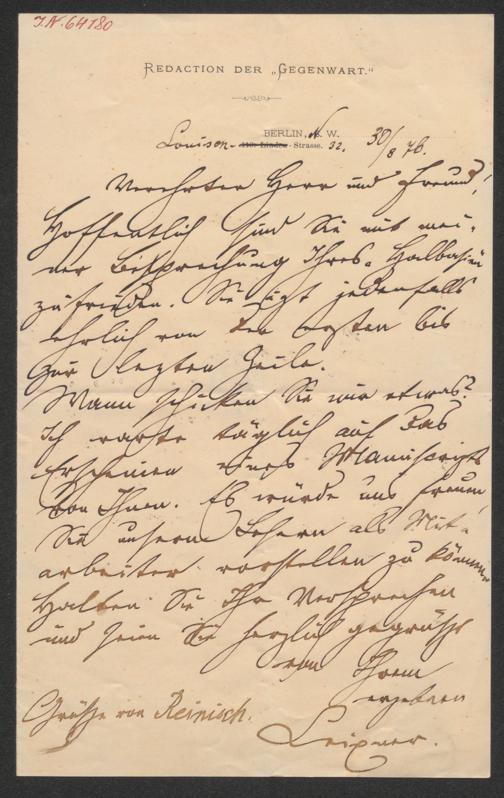 I.N. 64180
REDACTION DER „GEGENWART."
BERLIN, N. W.
Louisen- Strasse. 32. 30/8 76.
Verehrter Herr und Freund!
Hoffentlich sind Sie mit mei-
ner Besprechung Ihres „Halbasien"
zufrieden. Sie ist jedenfalls
ehrlich von der ersten bis
zur letzten Zeile.
Wann schicken Sie mir etwas?
Ich warte täglich auf das
Erscheinen eines Manuscripts
von Ihnen. Es würde uns freuen,
Sie unsern Lesern als Mit-
arbeiter vorstellen zu können.
Halten Sie Ihr Versprechen
und seien Sie herzlich gegrüßt
von Ihrem
ergebnen
Grüße von Reinisch.